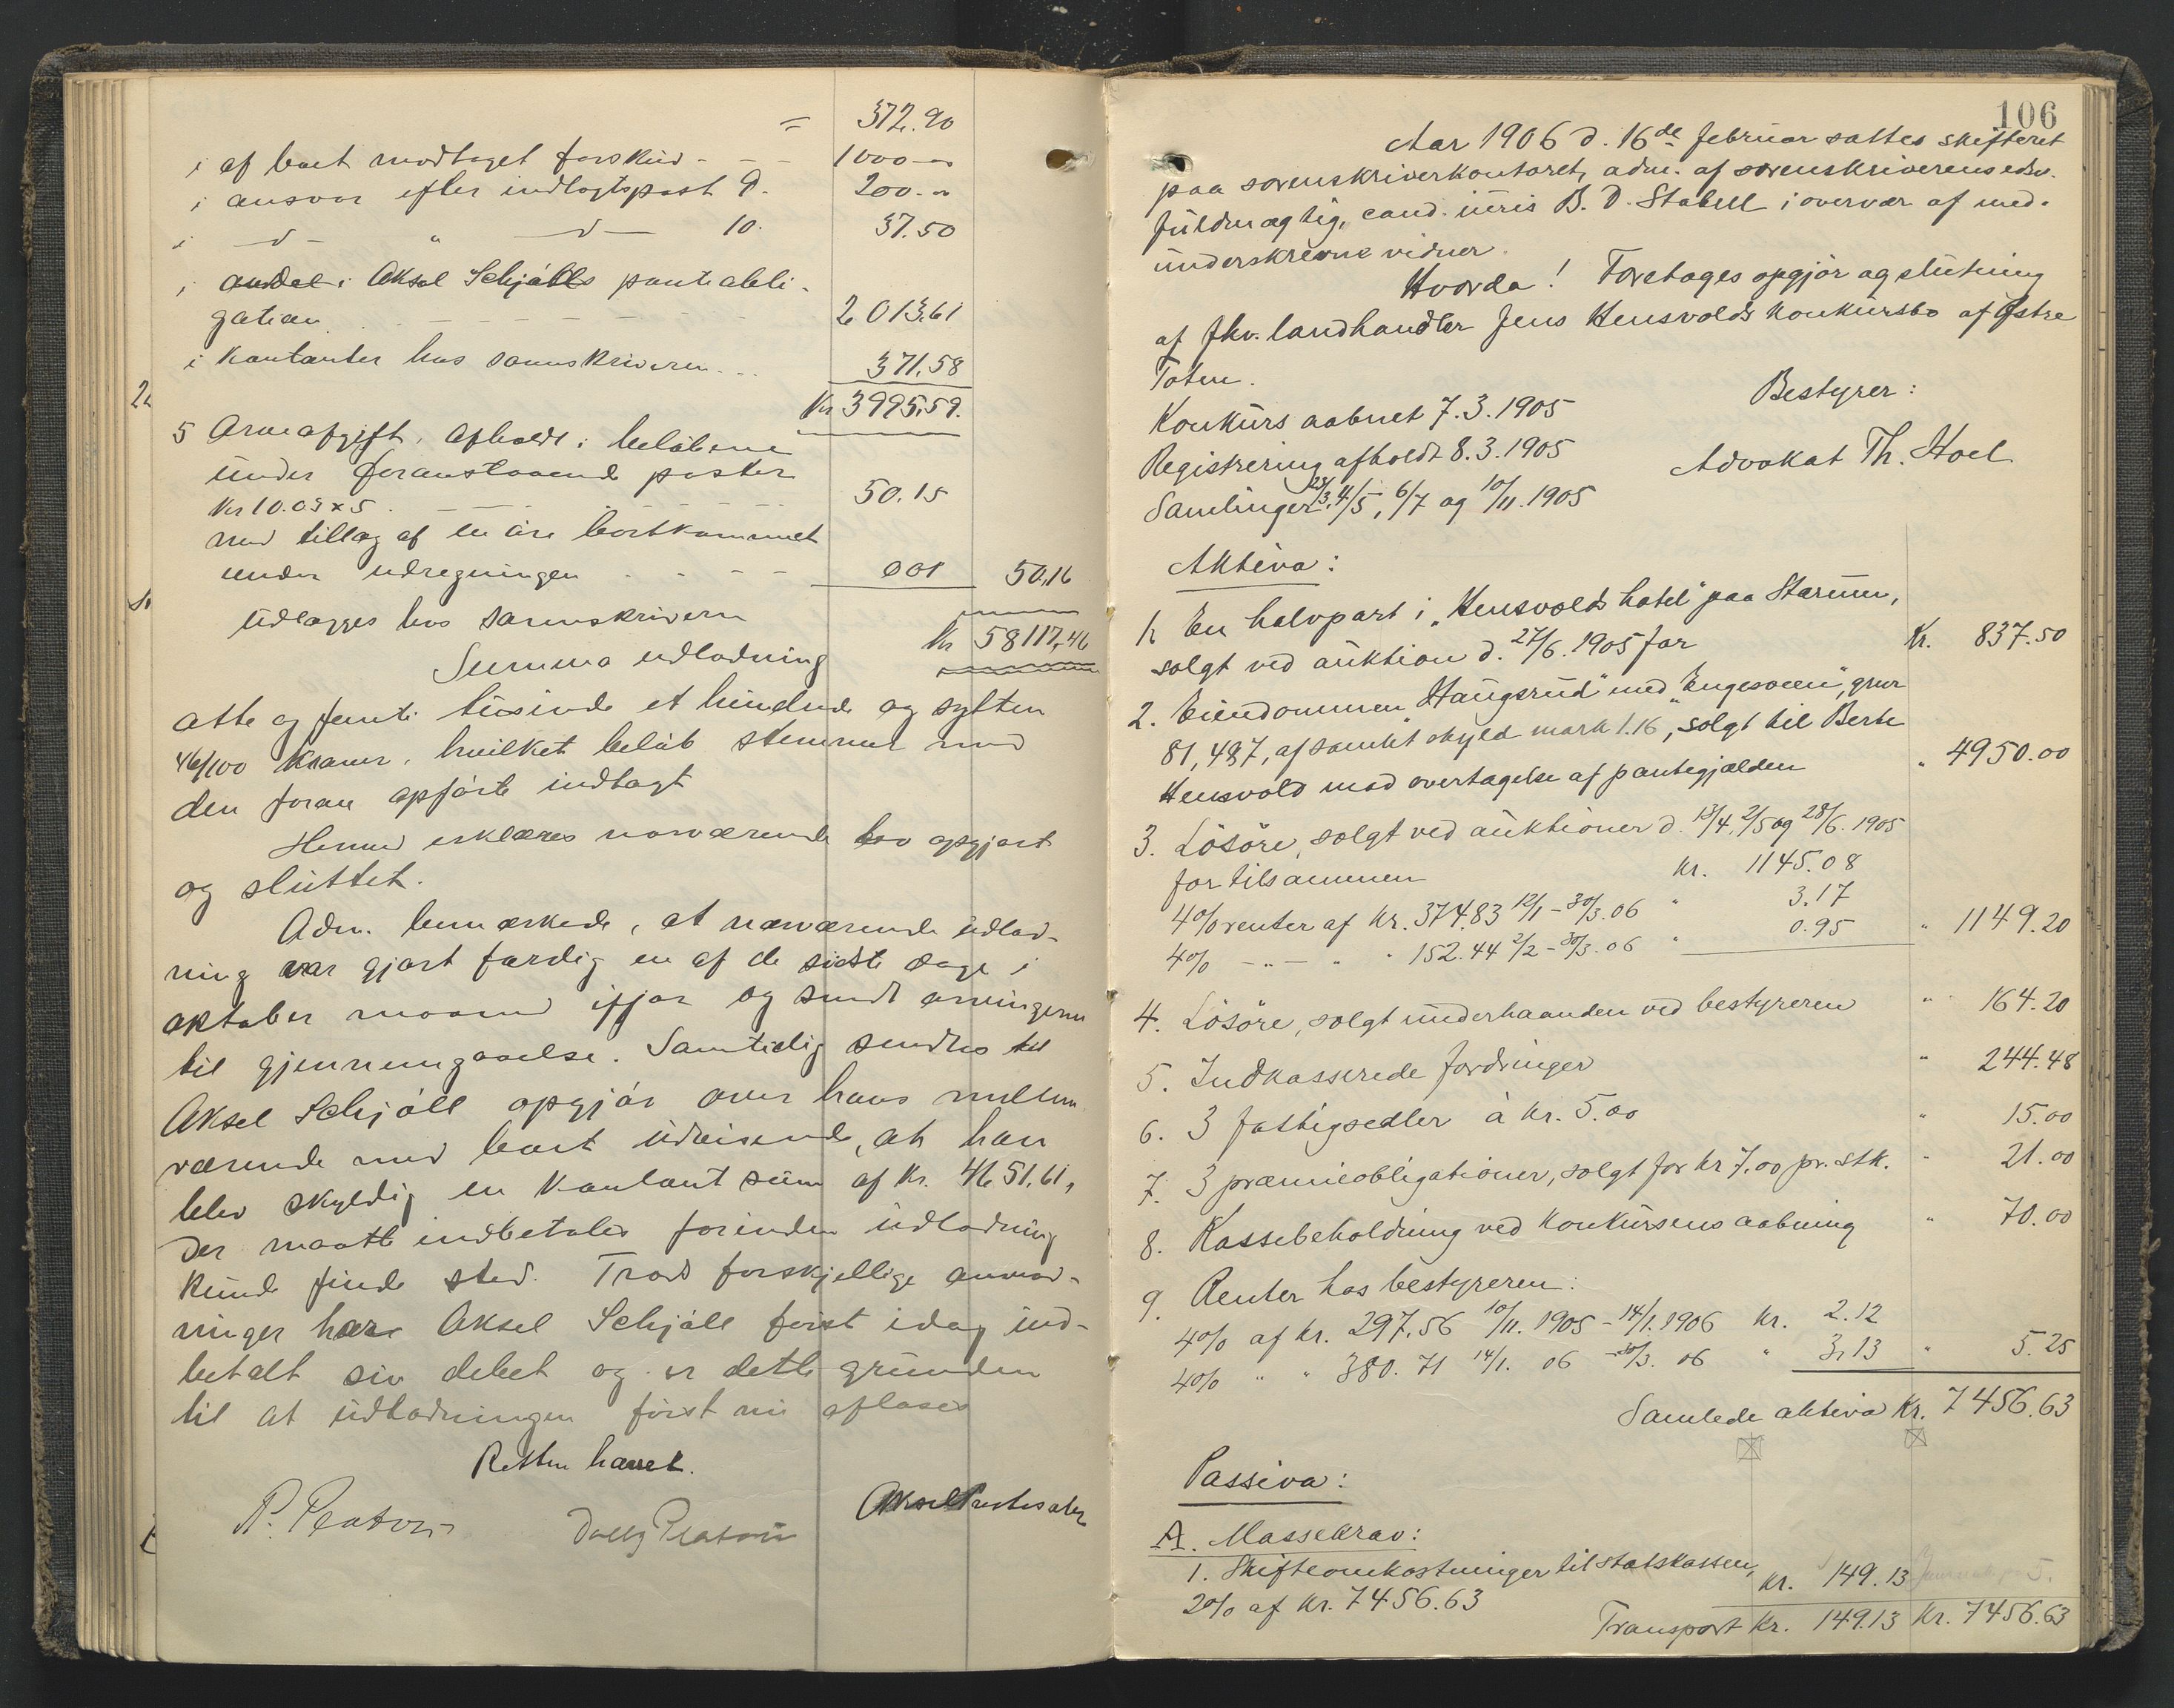 = 372.90
i af boet modtaget forskud - - - 1000 -
i ansvar efter indtægtspost 9. 200. -
i -d- " -d- 10. 37.50
i andel i Aksel Schjølls panteobli-
gation 2013.61
i kontanter hos sorenskriveren 371.58
Kr 3995.59.
5 Arveafgift, afholdt i beløbene
under foranstaaende poster
Kr 10.03 x 5 50.15
med tillæg af en øre bortkommet
under udregningen 001 50,16
udlægges hos sorenskriveren
Summa udlodning Kr 58117,46
otte og femti tusinde et hundrede og sytten
46/100 kroner, hvilket beløb stemmer med
den foran opførte indtægt
Hermed erklæres nærværende bo opgjort
og sluttet.
Adm. bemærkede, at nærværende udlod-
ning var gjort færdig en af de sidste dage i
oktober maaned ifjor og sendt arvingerne
til gjennemgaaelse. Samtidig sendtes til
Aksel Schjøll opgjør over hans mellem
værende med boet udvisende, at han
blev skyldig en kontant sum af Kr. 4651,61,
der maatte indbetales forinden udlodning
kunde finde sted. Trods forskjellige anmod-
ninger har Aksel Schjøll først idag ind-
betalt sin debet og er dette grunden
til at udlodningen først nu aflases
Retten hævet.
106
Aar 1906 d. 16de februar sattes skifteret
paa sorenskriverkontoret, adm. af sorenskriverens edsv.
fuldmægtig, cand. juris B. D. Stabell i overvær af med-
underskrevne vidner.
Hvorda! Foretages opgjør og slutning
af fhv. landhandler Jens Hensvolds konkursbo af Østre
Toten.
Bestyrer:
Konkurs aabnet 7.3.1905
Registrering afholdt 8.3.1905
Advokat Th. Hoel
Samlinger 23/3, 4/5, 6/7 og 10/11. 1905
Aktiva:
1. En halvpart i „Hensvolds hotel" paa Starum,
solgt ved auktion d. 27/6. 1905 for Kr. 837.50
2. Eiendommen „Haugsrud" med „Engesveen", gnr
81, 487, af samlet skyld mark 1.16, solgt til Berte
Hensvold mod overtagelse af pantegjælden " 4950.00
3. Løsøre, solgt ved auktioner d. 13/4, 2/5 og 28/6. 1905
for tilsammen kr. 1145.08
4% renter af kr. 374.83 12/1 - 30/3. 06 " 3.17
4% - " - " " 152.44 2/2 - 30/3. 06 " 0.95 " 1149.20
4. Løsøre, solgt underhaanden ved bestyreren " 164.20
5. Indkasserede fordringer " 244.48
6. 3 fattigsedler à kr. 5.00 " 15.00
7. 3 præmieobligationer, solgt for kr 7.00 pr. stk. " 21.00
8. Kassebeholdning ved konkursens aabning " 70.00
9. Renter hos bestyreren:
4% af kr. 297.56 10/11. 1905 - 14/1. 1906 kr. 2.12
4% " " 380.71 14/1. 06 - 30/3. 06 " 3,13 " 5.25
Samlede aktiva kr. 7456.63
Passiva:
A. Massekrav:
1. Skifteomkostninger til statskassen,
2% af kr. 7456.63 kr. 149.13
Transport kr. 149.13 kr. 7456.63